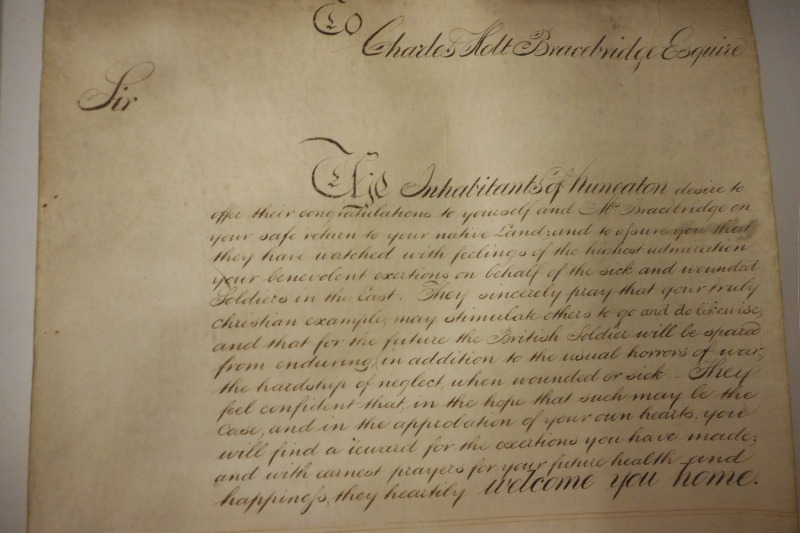 To
Charles Holt Bracebridge Esquire
Sir
The Inhabitants of Nuneaton desire to
offer their congratulations to yourself and Mrs Bracebridge on
your safe return to your native Land; and to assure you that
they have watched with feelings of the highest admiration
your benevolent exertions on behalf of the sick and wounded
Soldiers in the East. They sincerely pray that your truly
christian example, may stimulate others to go and do likewise;
and that for the future the British Soldier will be spared
from enduring, (in addition to the usual horrors of war,)
the hardship of neglect, when wounded or sick. They
feel confident that, in the hope that such may be the
Case, and in the approbation of your own hearts, you
will find a reward for the exertions you have made;
and with earnest prayers for your future health and
happiness, they heartily welcome you home.